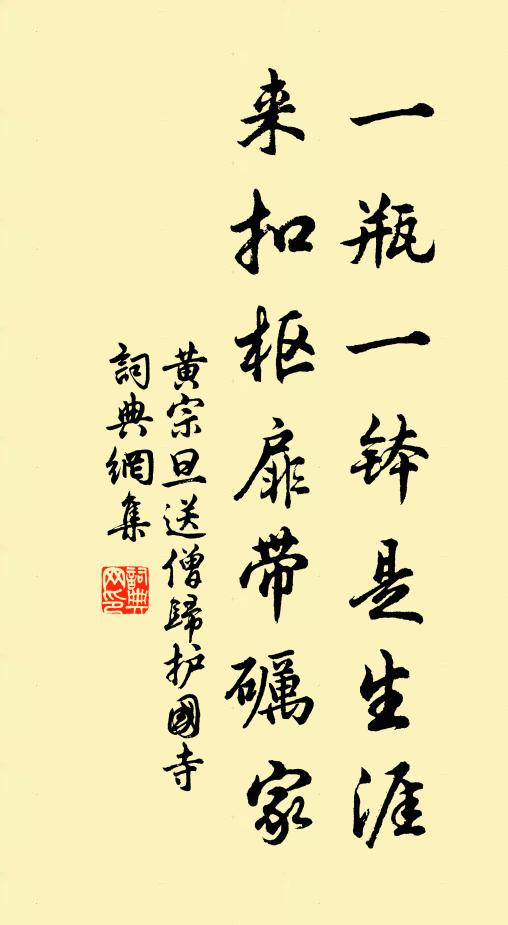 一瓶一钵是生涯
来扣枢扉带礪家
黄宗旦送僧歸护國寺
詞典網集
詞典网印